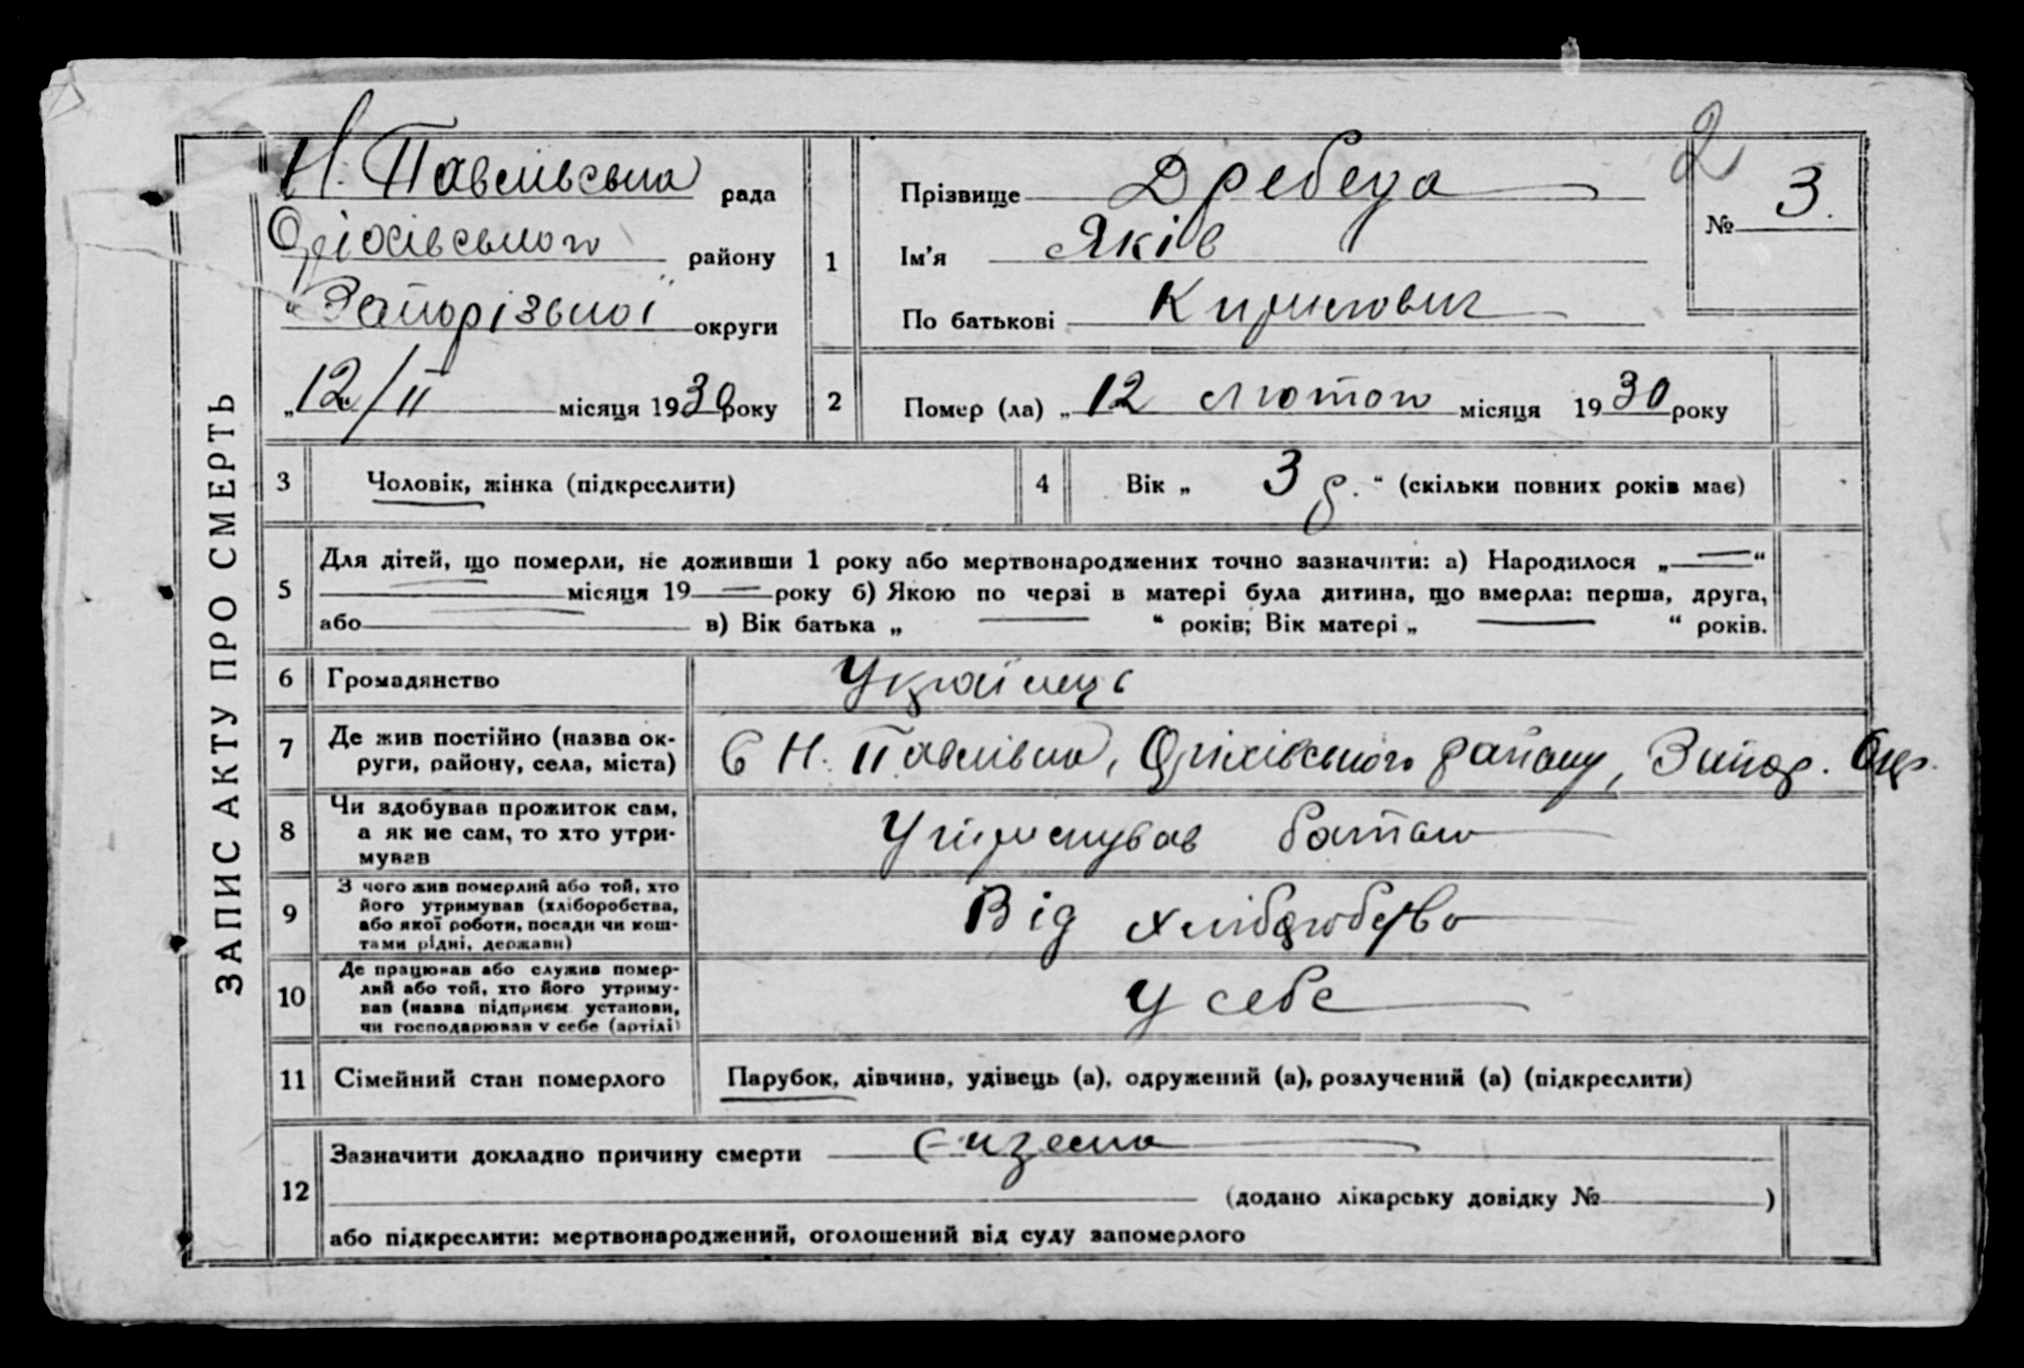 ЗАПИС АКТУ ПРО СМЕРТЬ
2
Н. Павлівська рада
Оріхівського району
Запорізької округи
"12/II місяця 1930 року
1
Прізвище Дребеда
Ім'я Яків
По батькові Кирилович
№ 3.
2
Помер (ла) „12 лютого місяця 1930 року
3 Чоловік, жінка (підкреслити)
4 Вік „ 3 р. “ (скільки повних років має)
5 Для дітей, що померли, не доживши 1 року або мертвонароджених точно зазначити: а) Народилося „ — “
— місяця 19 — року б) Якою по черзі в матері була дитина, що вмерла: перша, друга,
або — в) Вік батька „ — “ років; Вік матері „ — “ років.
6 Громадянство Українець
7 Де жив постійно (назва округи, району, села, міста) С Н. Павлівка, Оріхівського району, Запор. Окр.
8 Чи здобував прожиток сам,
а як не сам, то хто утри-
мував
Утримував батько
9 З чого жив померлий або той, хто
його утримував (хліборобства,
або якої роботи, посади чи кош-
тами рідні, держави)
Від
10 Де працював або служив помер-
лий або той, хто його утриму-
вав (назва підприєм установи,
чи господарював у себе (артілі)
У себе
11 Сімейний стан померлого Парубок, дівчина, удівець (а), одружений (а), розлучений (а) (підкреслити)
12 Зазначити докладно причину смерти
(додано лікарську довідку № )
або підкреслити: мертвонароджений, оголошений від суду запомерлого